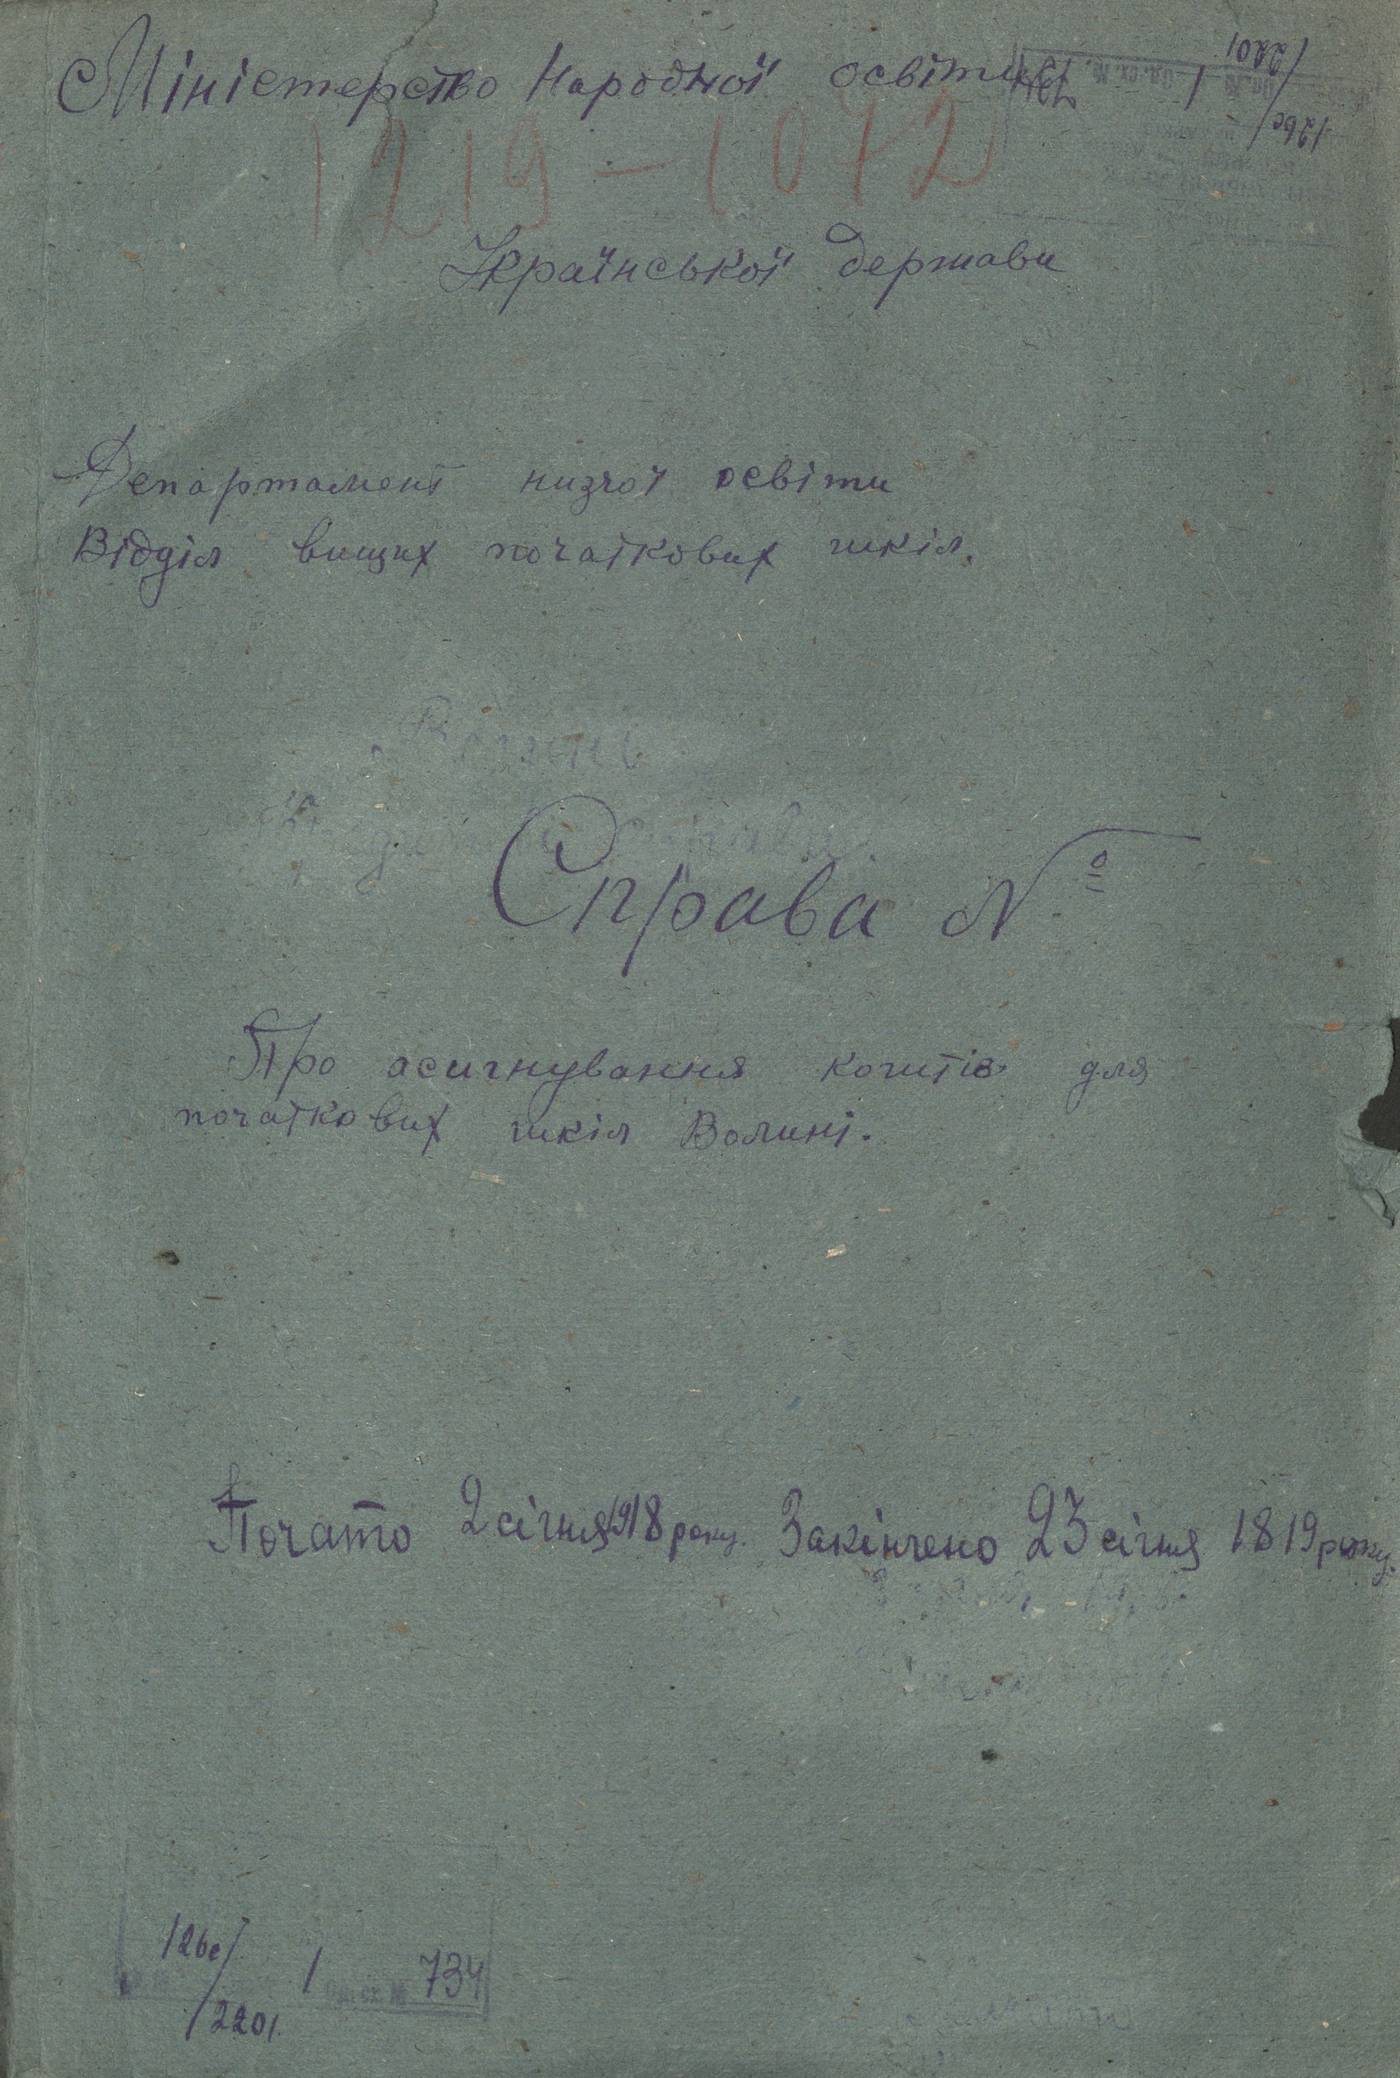 Міністерство Народної освіти
1219-1072
Української держави
Департамент низчої освіти
Відділ вищих початкових шкіл.
Справа №
Про асигнування коштів для
початкових шкіл Волині.
Почато 2 січня 1918 року. Закінчено 23 січня 1819 року.
126с/ 1 734
/2201.